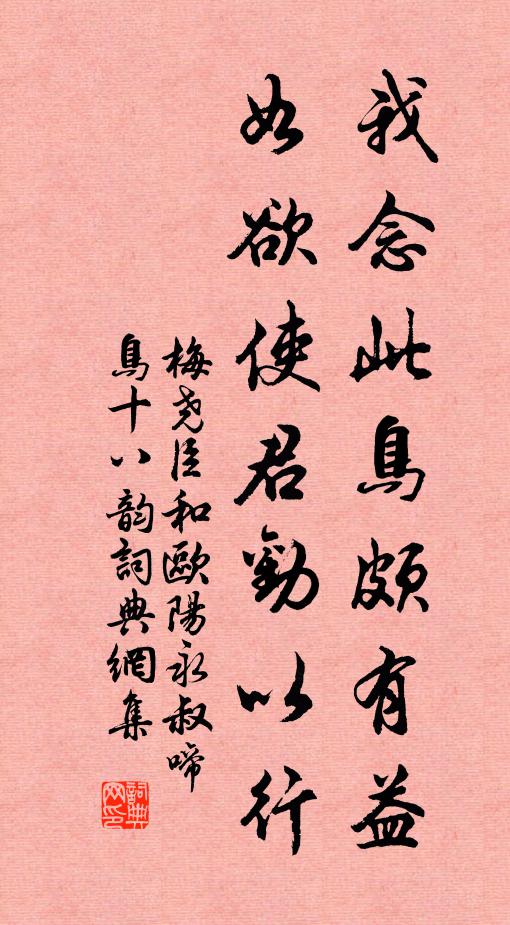 我念此鳥頗有益
如欲使君勤以行
梅尧臣和歐陽永叔啼
鳥十八韵詞典網集
詞典网印